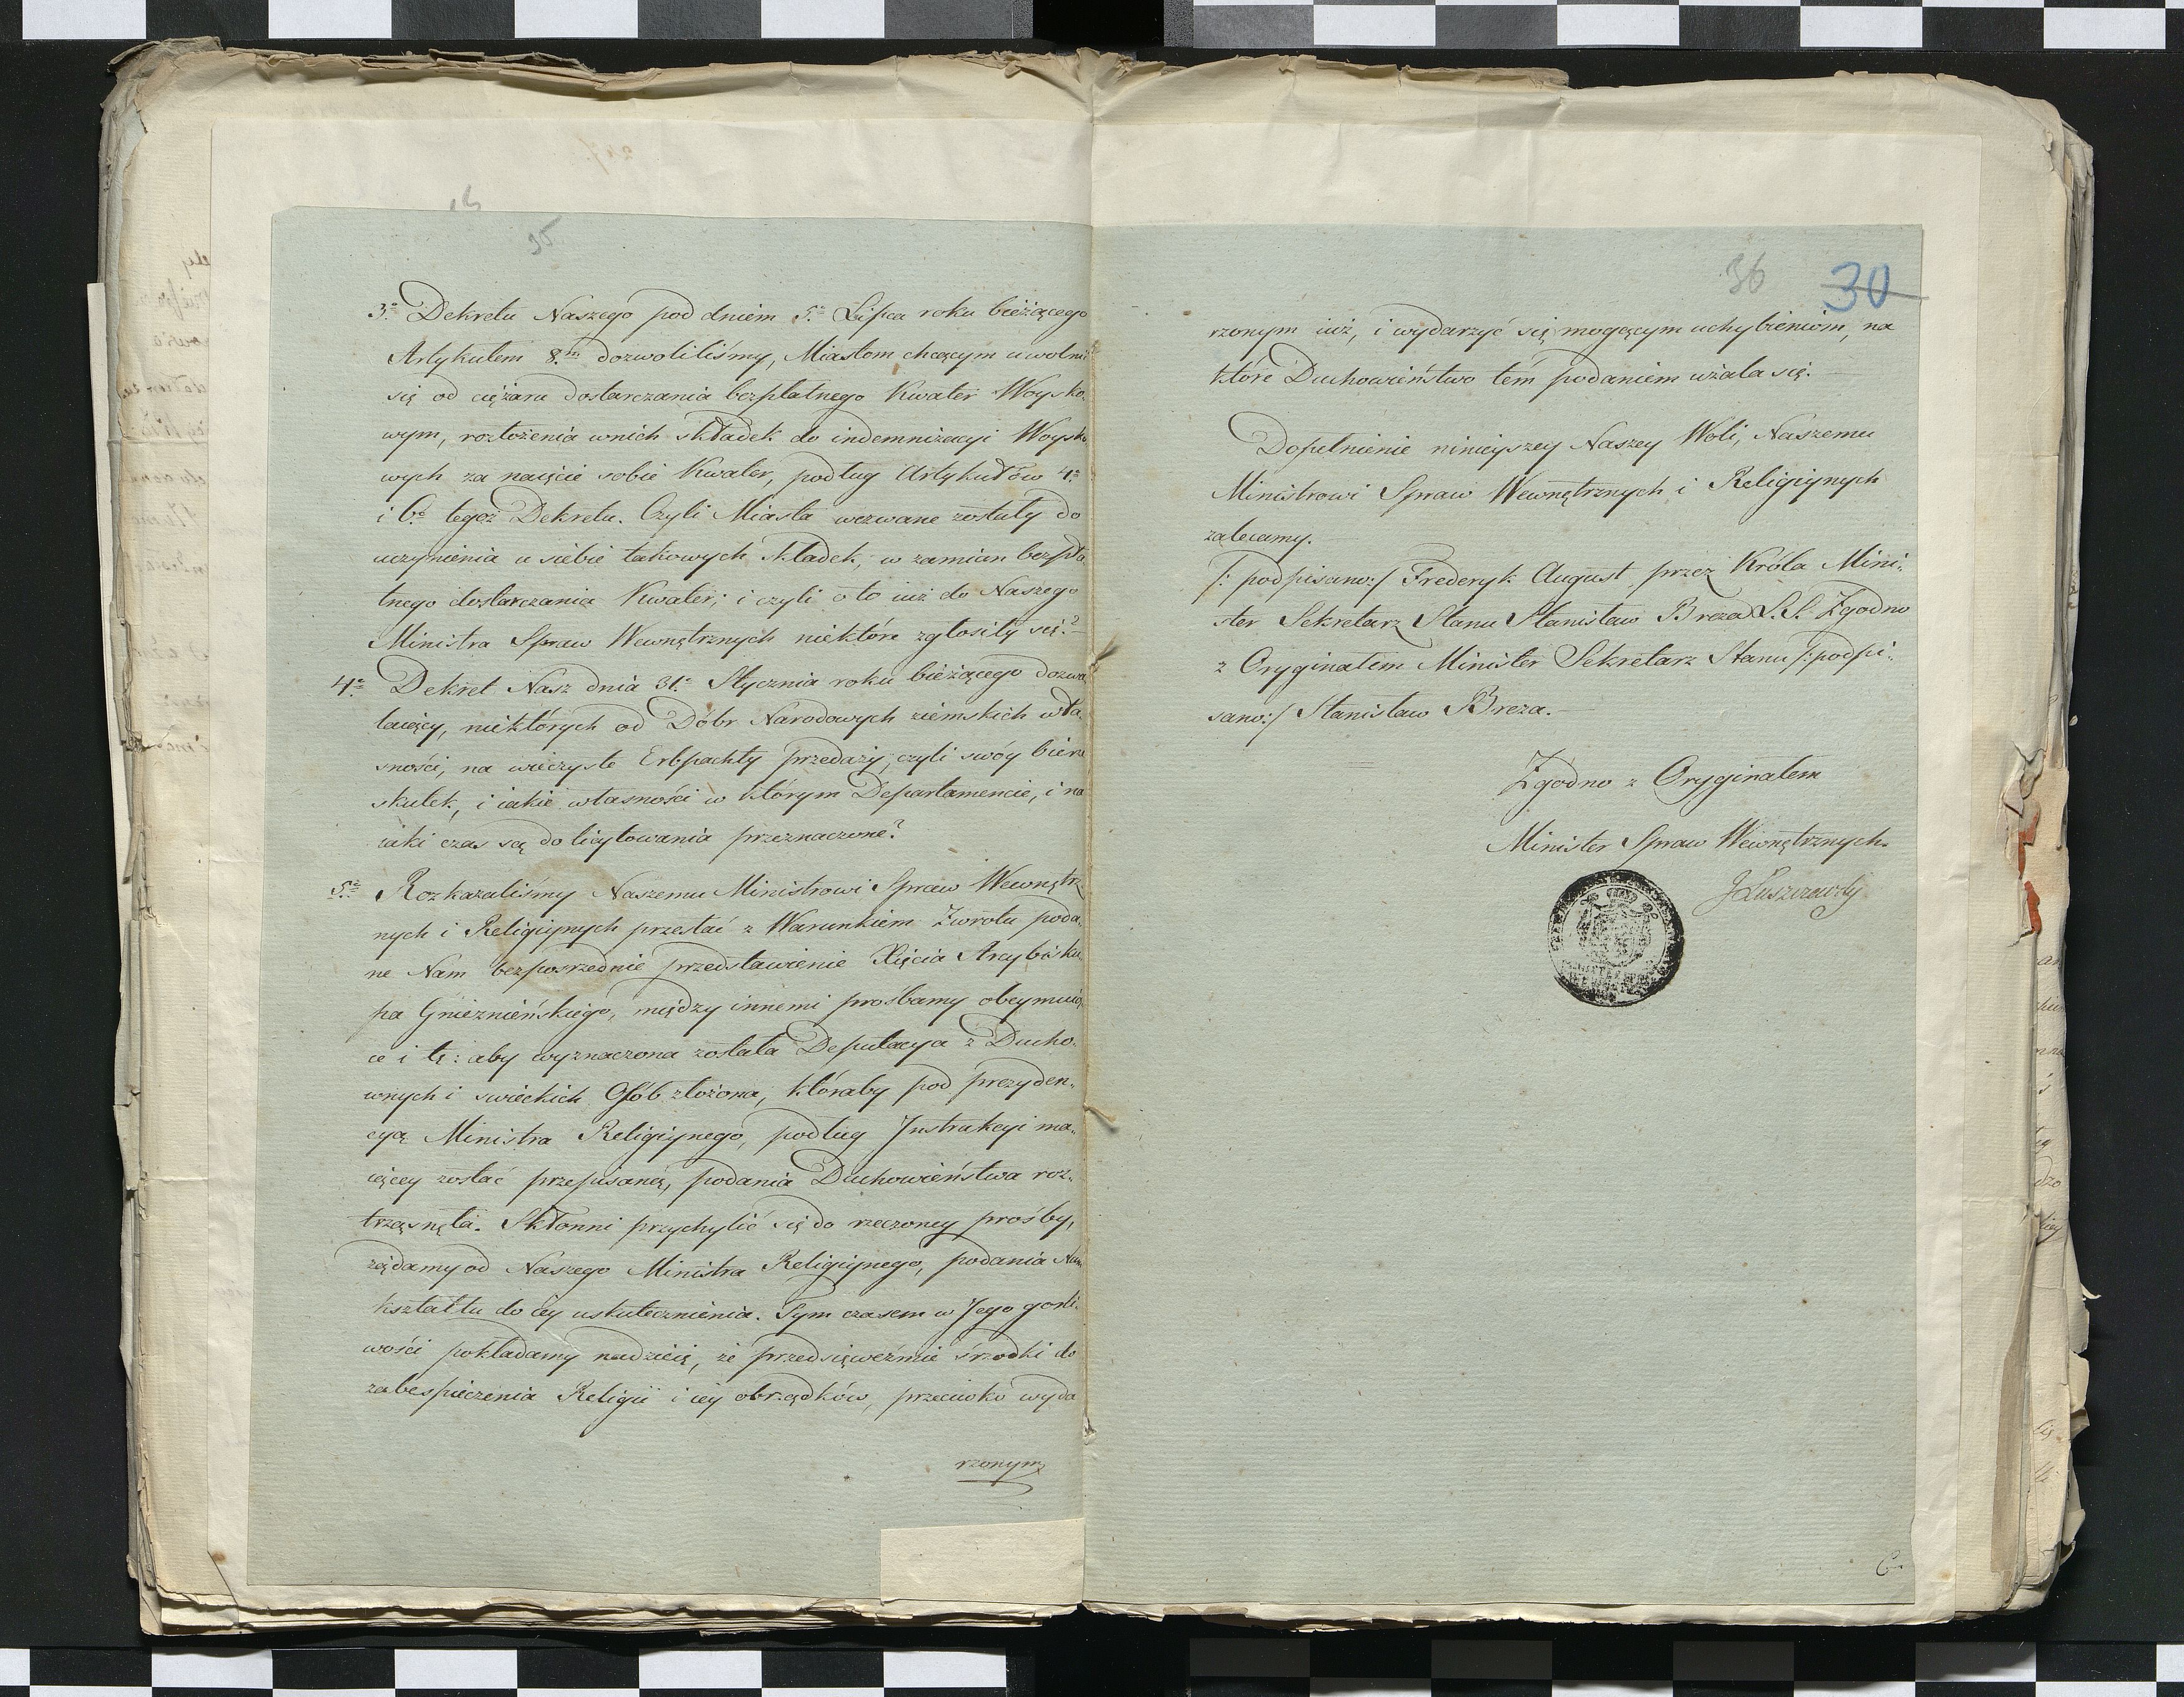 35
3º Dekretu Naszego pod dniem 5º Lipca roku bieżącego
Artykułem 8m dozwoliliśmy, Miastom chcącym uwolni
się od ciężaru dostarczania bezpłatnego Kwater Woysko-
wym, rozłożenia wnich składek do indemnizacyi Woysko
wych za naięcie sobie Kwater, podług Artykułów 4º
i 6º tegoż Dekretu. Czyli Miasta wezwane zostały do
uczynienia u siebie takowych składek, w zamian bezpła
tnego dostarczania Kwater; i czyli o to iuż do Naszego
Ministra Spraw Wewnętrznych niektóre zgłosiły się?
4º Dekret Nasz dnia 31º Stycznia roku bieżącego dozwa
laiący, niektórych od Dóbr Narodowych ziemskich wła-
sności, na wieczyste Erbpachty przedaży, czyli swóy bierze
skutek, i iakie własności w którym Departamencie, i na
iaki czas są do licytowania przeznaczone?
5º Rozkazaliśmy Naszemu Ministrowi Spraw Wewnętrz
nych i Religiynych przesłać z Warunkiem Zwrotu poda-
ne Nam bezposrzednie przedstawienie Xięcia Arcybisku-
pa Gnieznieńskiego, między innemi prośbamy obeymuią
ce i tę: aby wyznaczona została Deputacya z Ducho-
wnych i swieckich Osób złożona, któraby pod prezyden-
cyą Ministra Religiynego, podług Jnstrukcyi ma-
iącey zostać przepisaną, podania Duchowieństwa roz-
trząsnęła. Skłonni przychylić się do rzeczoney prośby,
żądamy od Naszego Ministra Religiynego, podania Nam
kształtu do iey uskutecznienia. Tym czasem w Jego gorli-
wości pokładamy nadzieię, że przedsięweźmie środki do
zabespieczenia Religii i iey obrządków, przeciwko wyda
rzonym
36 30
rzonym iuż, i wydarzyć się mogącym uchybieniom, na
które Duchowieństwo tem podaniem użala się.
Dopełnienie ninieyszey Naszey Woli, Naszemu
Ministrowi Spraw Wewnętrznych i Religiynych
zalecamy.
/: podpisano:/ Frederyk August, przez Króla Mini-
ster Sekretarz Stanu Stanisław Breza L.S. Zgodno
z Oryginałem Minister Sekretarz Stanu /:podpi-
sano:/ Stanisław Breza.
Zgodno z Oryginałem
Minister Spraw Wewnętrznych.
JŁuszczewski